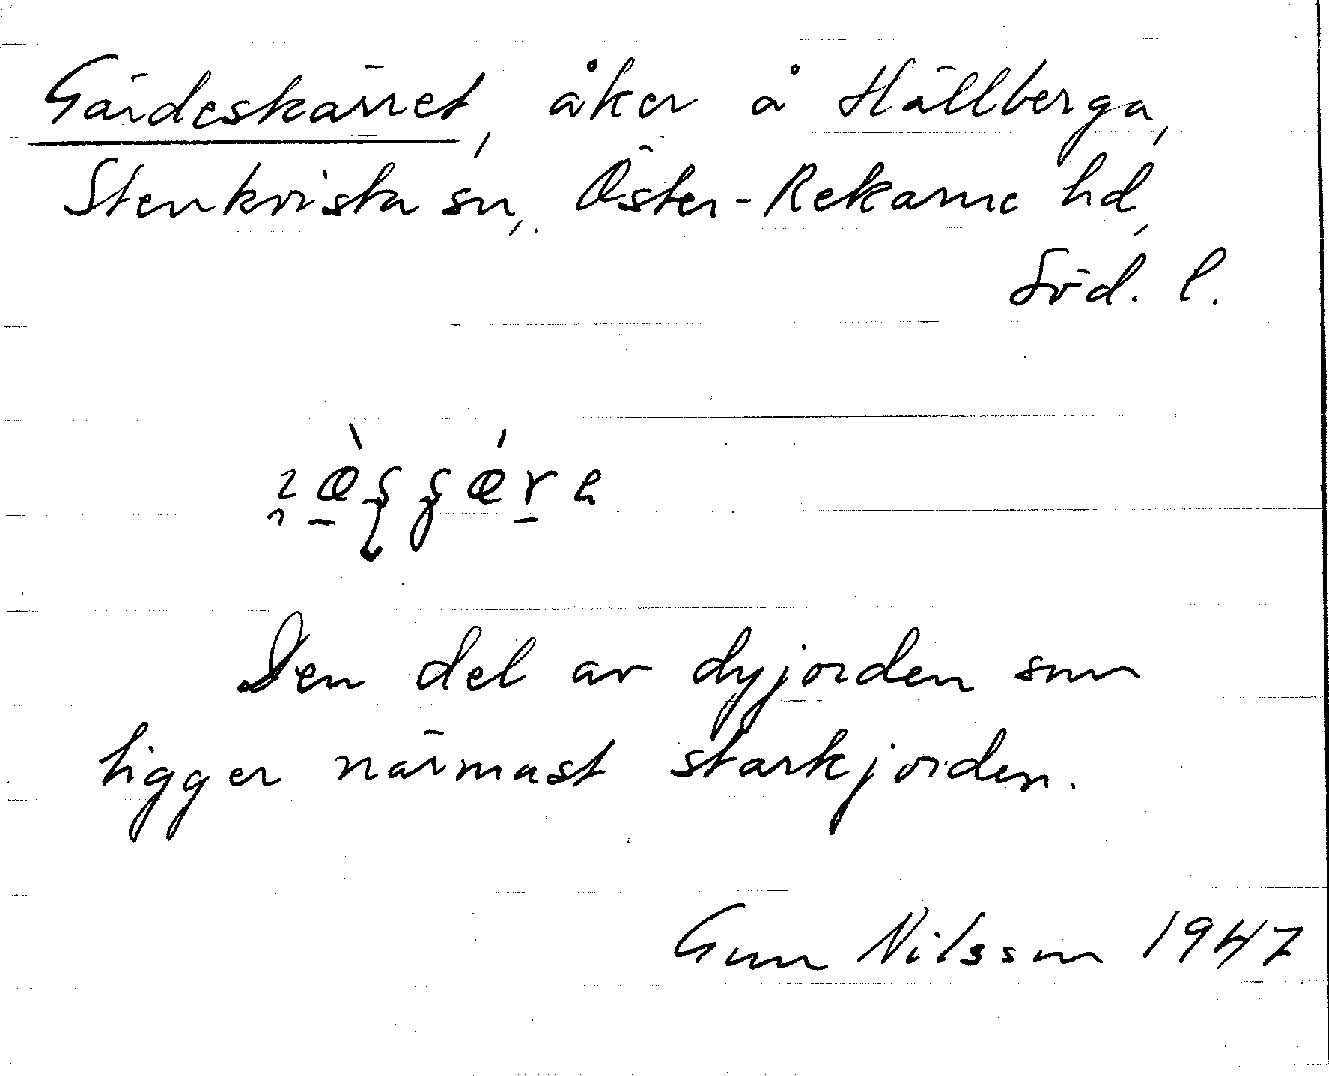 Gärdeskärret, åker å Hällberga,
Stenkvista sn, Öster-Rekarne hd,
Söd. l.
Den del av dyjorden som
ligger närmast starkjorden.
Gun Nilsson 1947